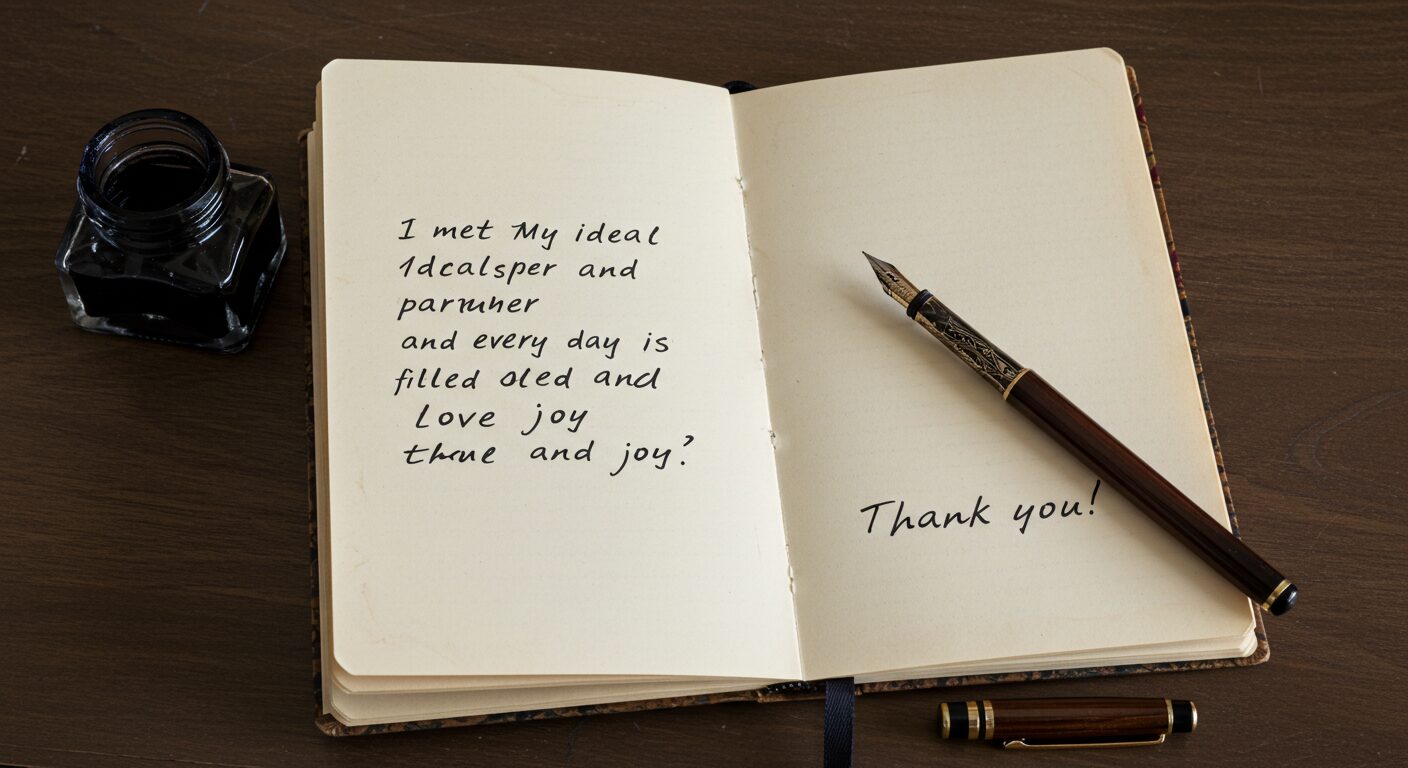 I met My ideal
1dcalsper and
parmuher
and every day is
filled oled and
Love joy
and joy?
Thank you!